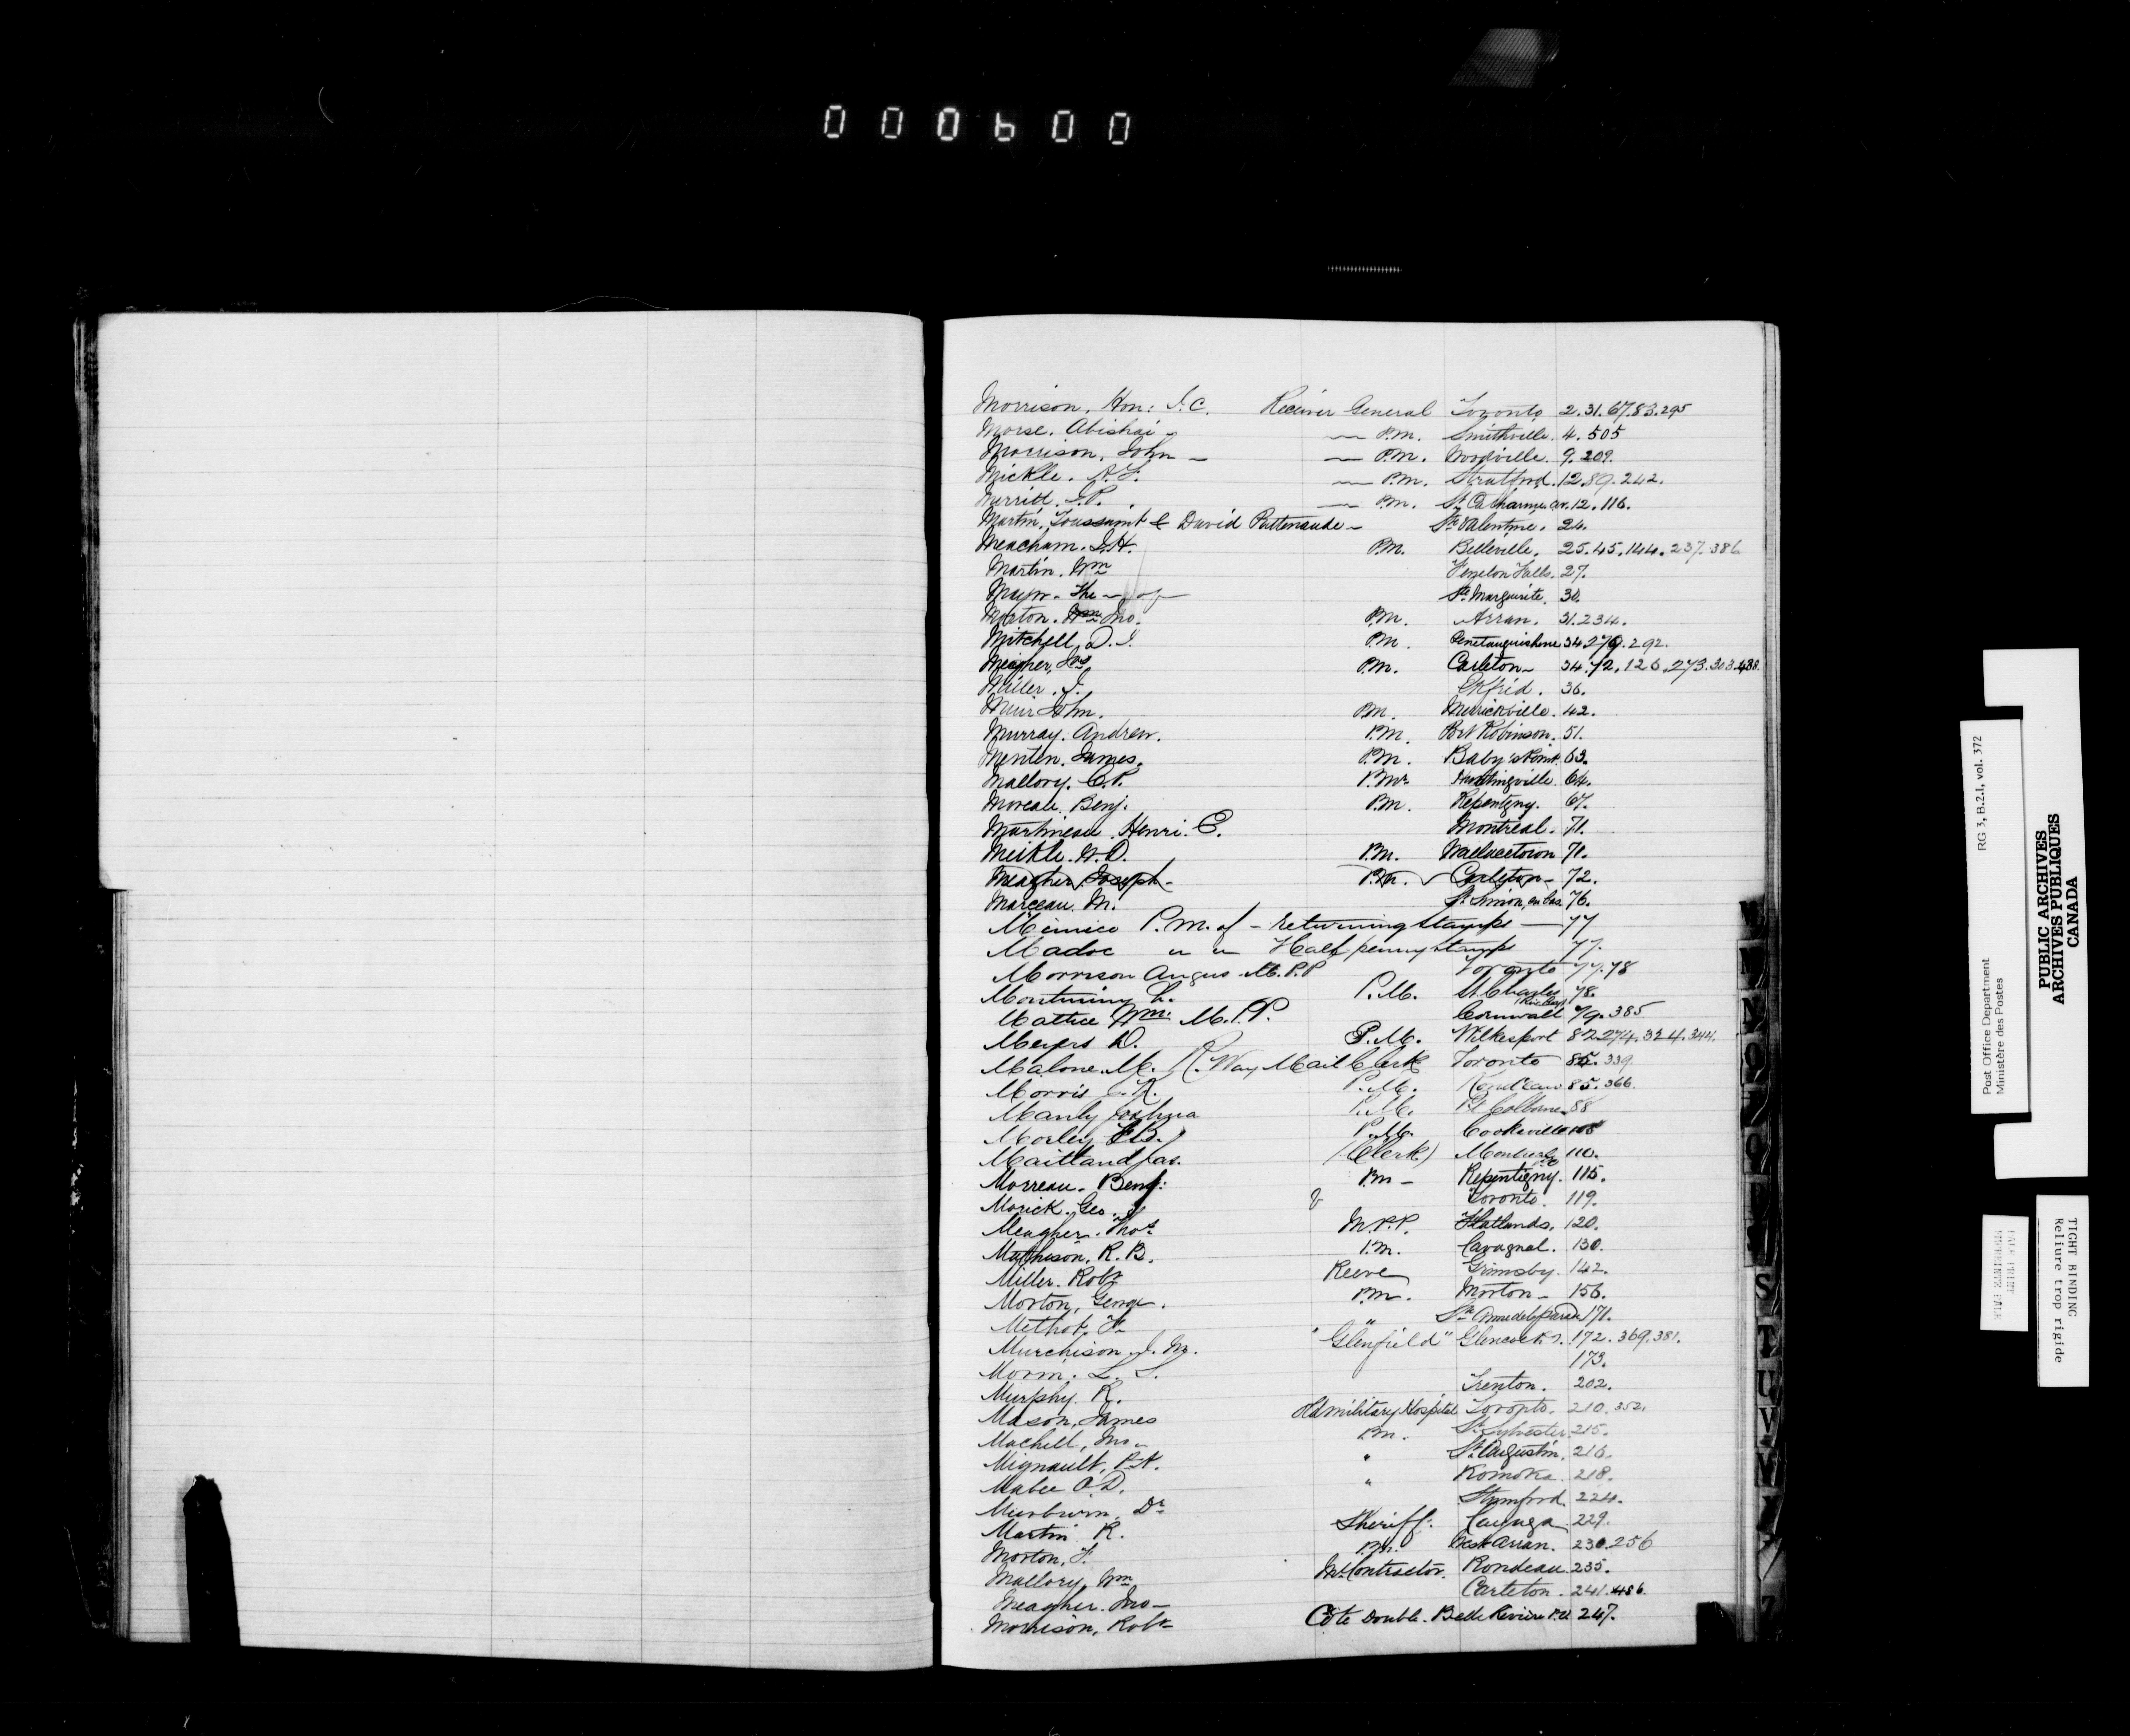 000600
Morrison, Hon: J.C. Receiver General Toronto 2.31.67.83.295
Morse. Abishai - P.M. Smithville. 4.505
Morrison, John - P.M. Woodville. 9.209.
Mickle. P.M. Stratford. 12.89.242.
Merritt. J.P. P.M. St Catharine 12.116.
Martin, Toussaint & David St Valentine. 24.
Meacham. J.H. P.M. Belleville. 25.45.144.237.386
Martin. Wm Fenelon Falls. 27.
Mayor. The - of St Marguerite.
Morton. Wm Jno. P.M. Arran. 31.234.
Mitchell, D.J. P.M. Penetanguishene 34.279.292.
Meagher, Jos. P.M. Carleton - 34.72.126.273.303.438
Miller. J. Ekfrid. 36.
Muir John. P.M. Merrickville. 42.
Murray. Andrew. P.M. Port Robinson. 51.
Menten. James. P.M. Baby's Point. 63.
Mallory. C.P. P.M. Huntingville. 64.
Moreau. Benj. P.M. Repentigny. 67.
Martineau. Henri. E. Montreal. 71.
Meikle. W.D. P.M. Wallacetown 71.
Meagher, Joseph - P.M. Carleton - 72.
Marceau. M. St Simon, en bas 76.
Mimico P.M. of - returning stamps - 77
Madoc " " Half penny stamps 77.
Morrison Angus M.P.P Toronto 77.78
Montminy L. P.M. St Charles 78.
Mattice Wm. M.P.P. Cornwall 79.385
Meyers D. P.M. Wilkesport 82.274.324.344.
Malone. M. R. Way Mail Clerk Toronto 85.339.
Morris K. P.M. Rondeau 85.366.
Manly Joshua P.M. Pt Colborne 88
Morley F.B. P.M. Cooksville 108
Maitland Jas. (Clerk) Montreal 110.
Morreau. Benj: P.M - Repentigny. 115.
Morick. Geo. Toronto. 119.
Meagher. Thos M.P.P. Flatlands. 120.
Mathison, R.B. P.M. Cavagnal. 130.
Miller. Robt Reeve Grimsby. 142.
Morton, George. P.M. Morton - 156.
Methot. F. " Ste Anne de la Parade 171.
Murchison. J. M. "Glenfield" Glencoe 172.369.381.
Morin. L. S. 173.
Murphy. R. Trenton. 202.
Mason, James Old Military Hospital Toronto. 210.352.
Machell, Jno. P.M. St Sylvester 215.
Mignault, P.A. " St Augustin. 216.
Mabee O.D. " Komoka. 218.
Dr Stamford. 224.
Martin R. Sheriff. Cayuga. 229.
Morton, J. P.M. West Arran. 230.256
Mallory, Wm Ml Contractor. Rondeau 235.
Meagher. Jno - Carleton. 241.486.
Morrison, Robt Côte Double. Belle Rivière P.O. 247.
M
N
O
P
Q
R
S
T
U
V
W
Y
Z
Post Office Department RG 3, B.2.I, vol. 372
Ministère des Postes
PUBLIC ARCHIVES
ARCHIVES PUBLIQUES
CANADA
TIGHT BINDING
Reliure trop rigide
PALE PRINT